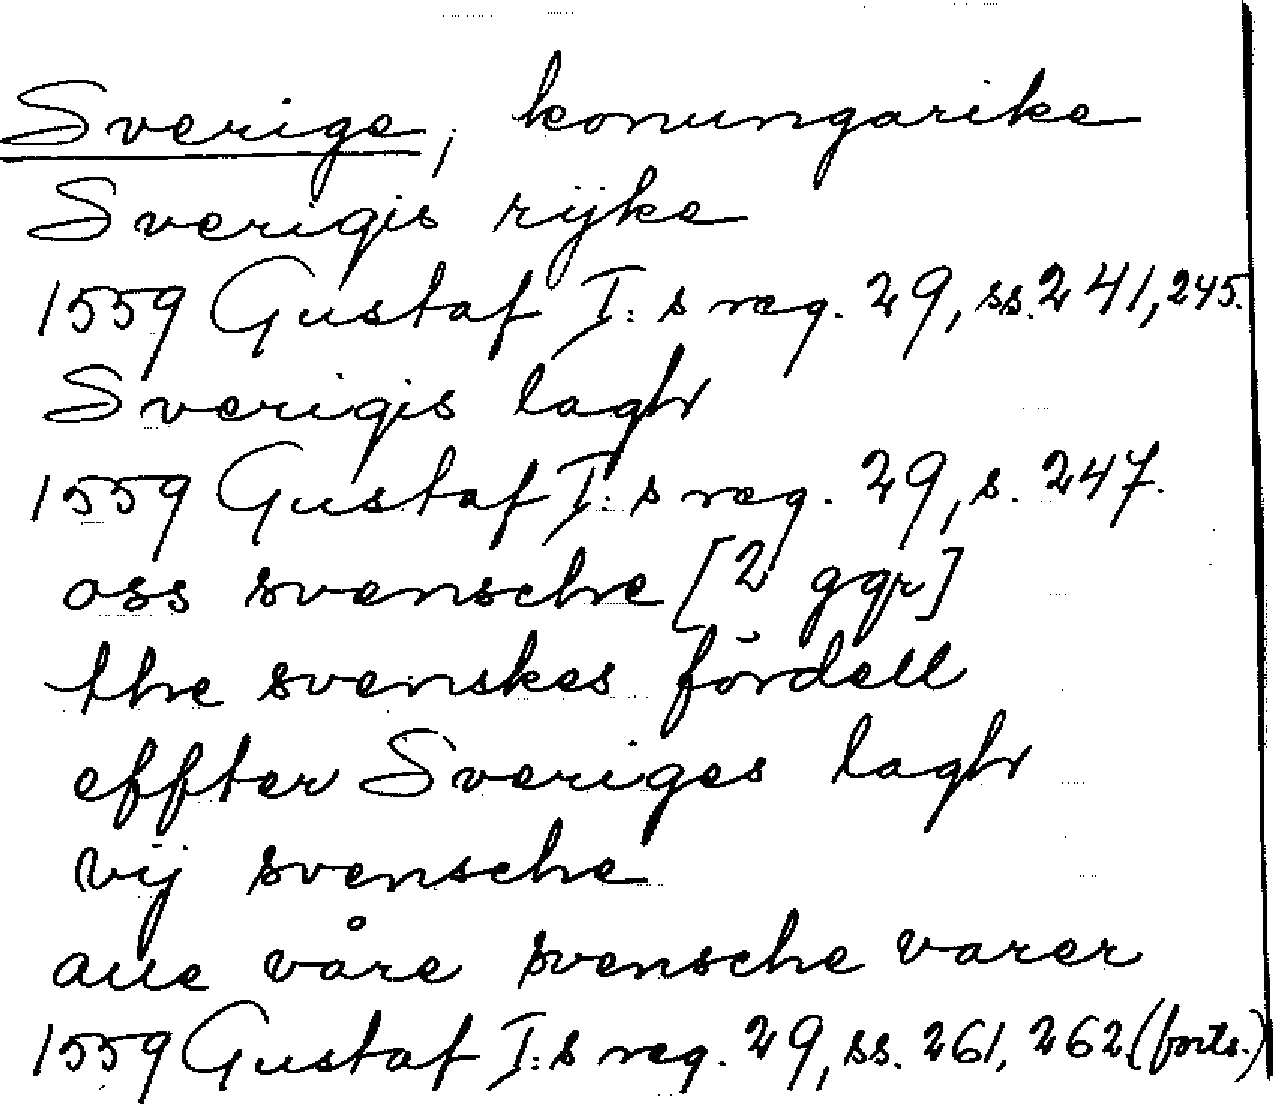 Sverige, konungarike
Sverigis rijke
1559 Gustaf I:s reg. 29, ss. 241, 245.
Sverigis lagh
1559 Gustaf I:s reg. 29, s. 247.
oss svensche [2 ggr]
the svenskes fördell
effter Sveriges lagh
vij svensche
alle våre svensche varer
1559 Gustaf I:s reg. 29, ss. 261, 262 (forts.)